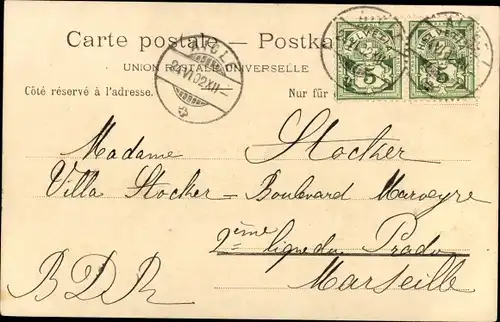 Carte postale — Postka
UNION POSTALE UNIVERSELLE
Côté réservé à l'adresse.
Nur für
AIGLE
24.VI.02.XII
HELVETIA HELVETIA
5 5
Madame Stocker
Villa Stocker – Boulevard Marveyre
2ème ligne du Prado
Marseille
BDR